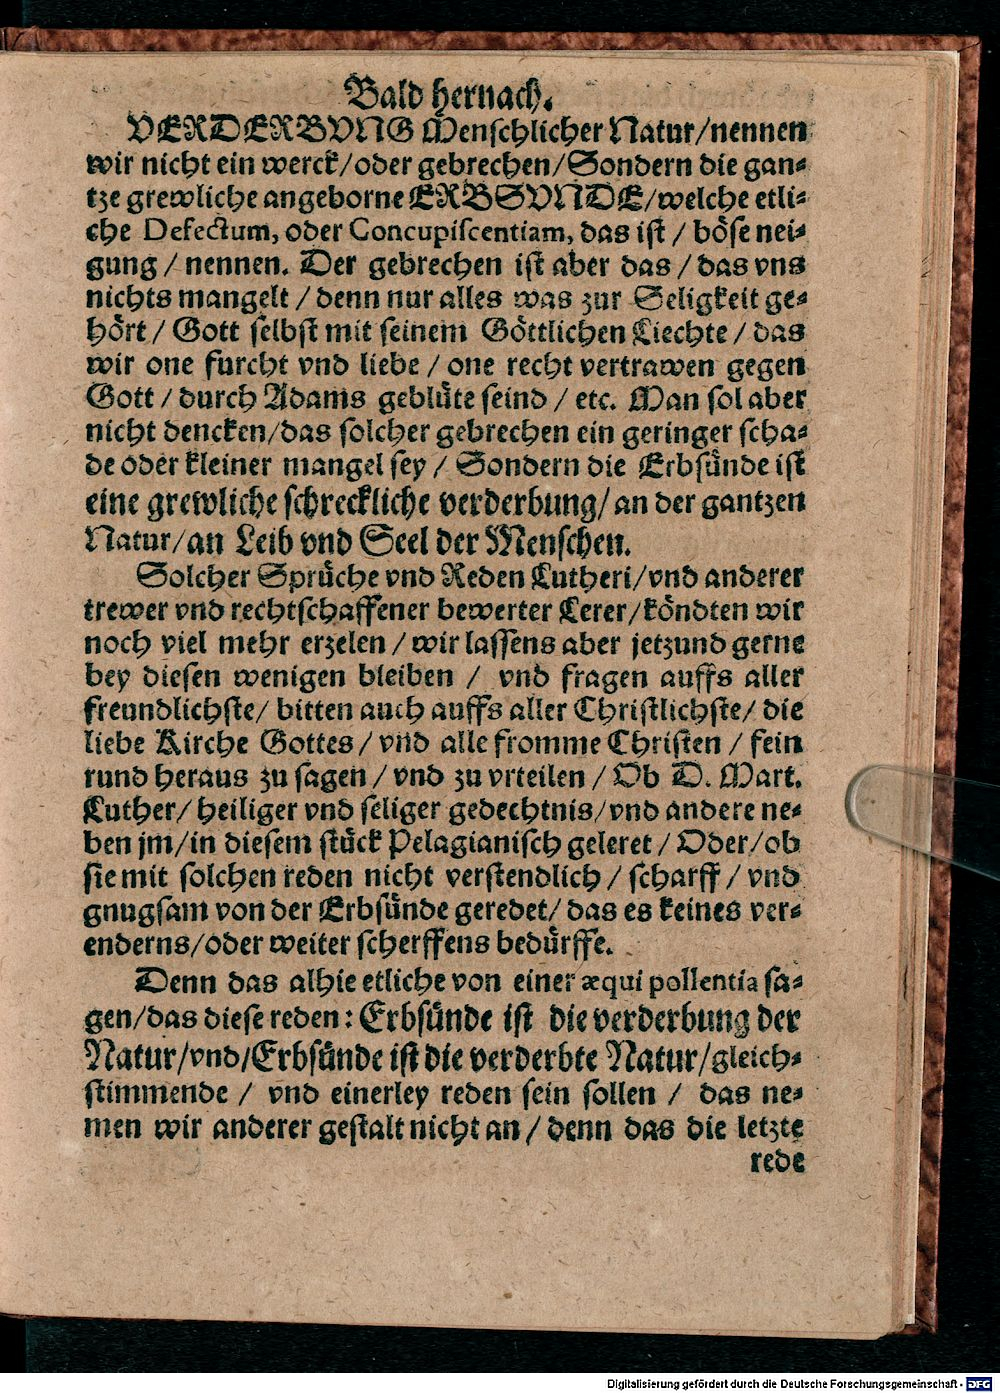 Bald hernach.
VERDERBVNG Menschlicher Natur/nennen
wir nicht ein werck/oder gebrechen/Sondern die gan-
tze grewliche angeborne ERBSVNDE/welche etli-
che Defectum, oder Concupiscentiam, das ist / böse nei-
gung / nennen. Der gebrechen ist aber das / das vns
nichts mangelt / denn nur alles was zur Seligkeit ge-
hört / Gott selbst mit seinem Göttlichen Liechte / das
wir one furcht vnd liebe / one recht vertrawen gegen
Gott / durch Adams geblüte seind / etc. Man sol aber
nicht dencken/das solcher gebrechen ein geringer scha-
de oder kleiner mangel sey / Sondern die Erbsünde ist
eine grewliche schreckliche verderbung/ an der gantzen
Natur/an Leib vnd Seel der Menschen.
Solcher Sprüche vnd Reden Lutheri/vnd anderer
trewer vnd rechtschaffener bewerter Lerer/köndten wir
noch viel mehr erzelen / wir lassens aber jetzund gerne
bey diesen wenigen bleiben / vnd fragen auffs aller
freundlichste/ bitten auch auffs aller Christlichste/ die
liebe Kirche Gottes / vnd alle fromme Christen / fein
rund heraus zu sagen / vnd zu vrteilen / Ob D. Mart.
Luther/ heiliger vnd seliger gedechtnis/vnd andere ne-
ben jm/in diesem stück Pelagianisch geleret / Oder/ob
sie mit solchen reden nicht verstendlich / scharff / vnd
gnugsam von der Erbsünde geredet/ das es keines ver-
enderns/oder weiter scherffens bedürffe.
Denn das alhie etliche von einer æquipollentia sa-
gen/das diese reden: Erbsünde ist die verderbung der
Natur/vnd/Erbsünde ist die verderbte Natur/gleich-
stimmende / vnd einerley reden sein sollen / das ne-
men wir anderer gestalt nicht an / denn das die letzte
rede
Digitalisierung gefördert durch die Deutsche Forschungsgemeinschaft - DFG